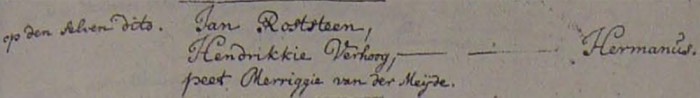 op den selven dito. Jan Roststeen,
Hendrikkie Verhoog, — — Hermanus.
peet Merriggie van der Meijde.